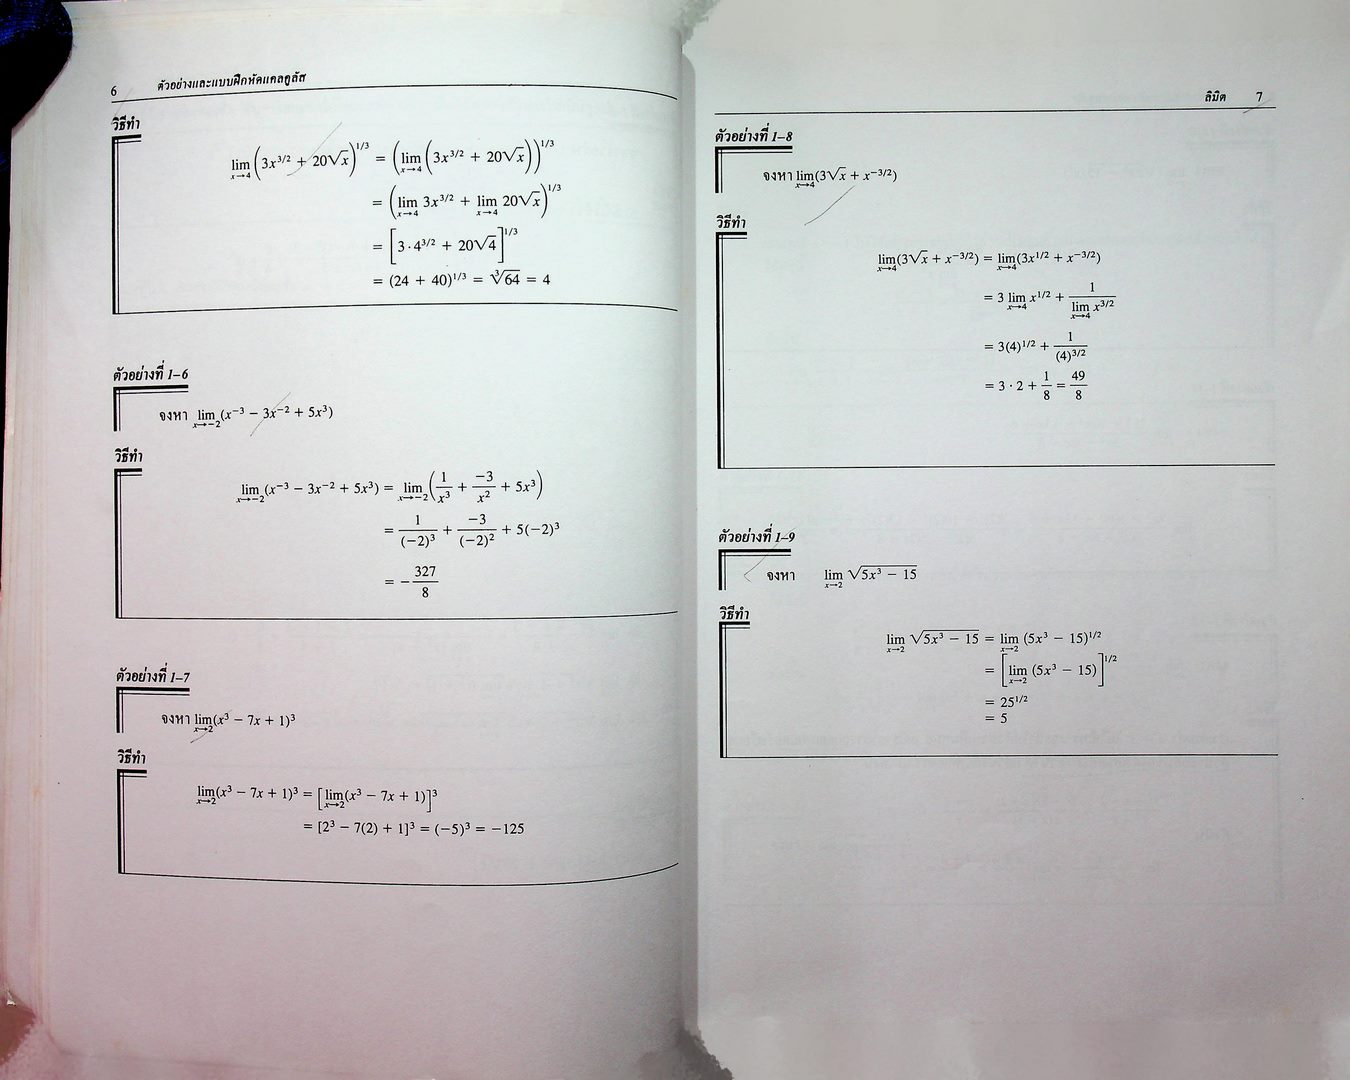 6 ตัวอย่างและแบบฝึกหัดแคลคูลัส
วิธีทำ
lim_{x→4} (3x^{3/2} + 20√x)^{1/3} = (lim_{x→4} (3x^{3/2} + 20√x))^{1/3}
= (lim_{x→4} 3x^{3/2} + lim_{x→4} 20√x)^{1/3}
= [3·4^{3/2} + 20√4]^{1/3}
= (24 + 40)^{1/3} = ∛64 = 4
ตัวอย่างที่ 1–6
จงหา lim_{x→−2} (x^{−3} − 3x^{−2} + 5x^3)
วิธีทำ
lim_{x→−2} (x^{−3} − 3x^{−2} + 5x^3) = lim_{x→−2} (1/x^3 + −3/x^2 + 5x^3)
= 1/(−2)^3 + −3/(−2)^2 + 5(−2)^3
= −327/8
ตัวอย่างที่ 1–7
จงหา lim_{x→2} (x^3 − 7x + 1)^3
วิธีทำ
lim_{x→2} (x^3 − 7x + 1)^3 = [lim_{x→2} (x^3 − 7x + 1)]^3
= [2^3 − 7(2) + 1]^3 = (−5)^3 = −125
ลิมิต 7
ตัวอย่างที่ 1–8
จงหา lim_{x→4} (3√x + x^{−3/2})
วิธีทำ
lim_{x→4} (3√x + x^{−3/2}) = lim_{x→4} (3x^{1/2} + x^{−3/2})
= 3 lim_{x→4} x^{1/2} + 1/(lim_{x→4} x^{3/2})
= 3(4)^{1/2} + 1/(4)^{3/2}
= 3 · 2 + 1/8 = 49/8
ตัวอย่างที่ 1–9
จงหา lim_{x→2} √(5x^3 − 15)
วิธีทำ
lim_{x→2} √(5x^3 − 15) = lim_{x→2} (5x^3 − 15)^{1/2}
= [lim_{x→2} (5x^3 − 15)]^{1/2}
= 25^{1/2}
= 5